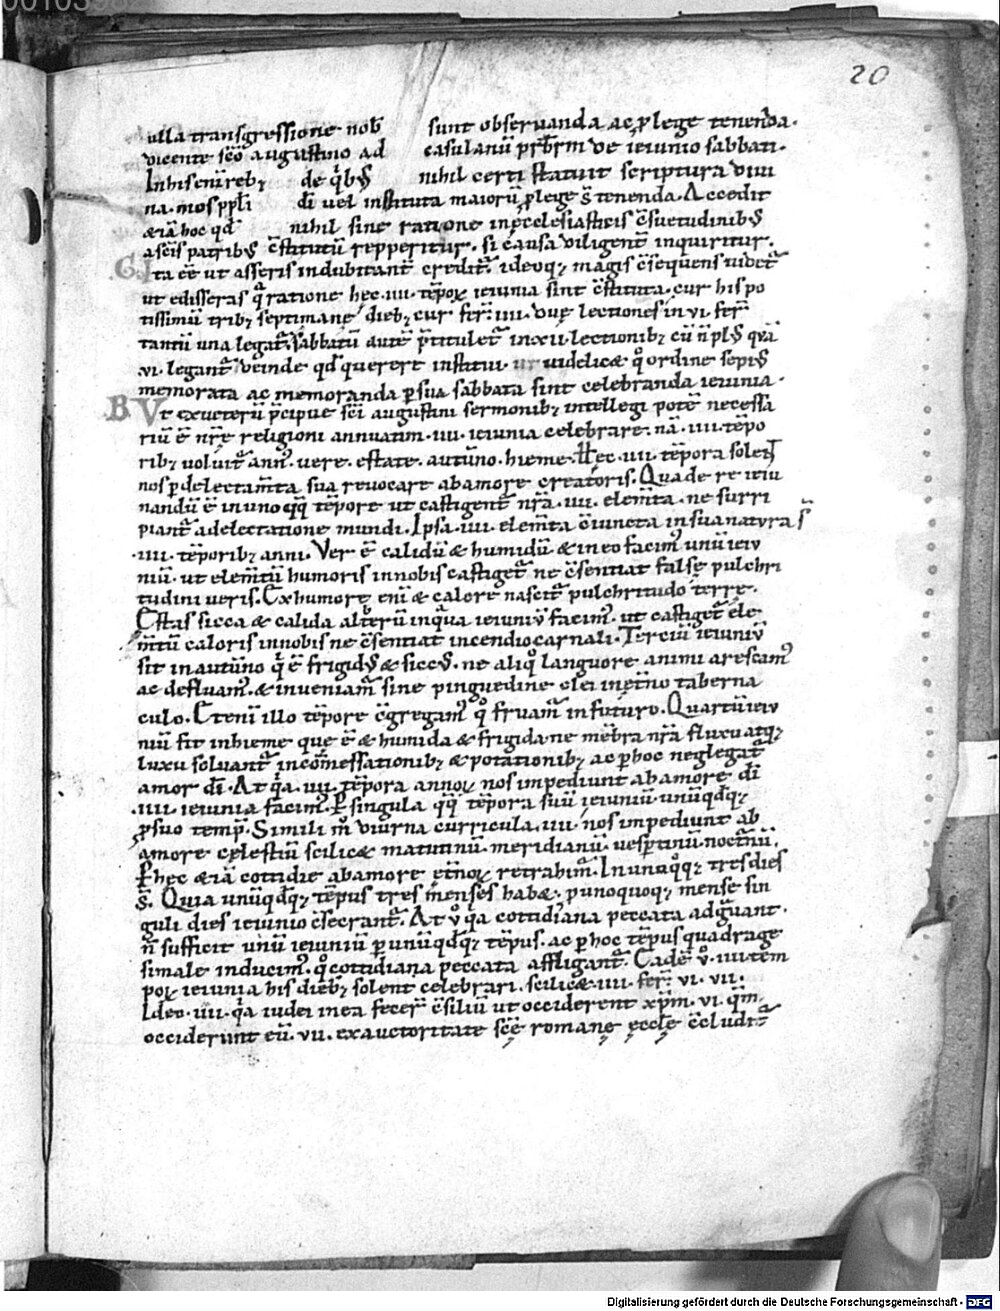 20
ulla transgressione nob̄ sunt obseruanda ac ꝓ lege tenenda.
dicente sc̄o augustino ad casulanū pr̄bm̄ de ieiunio sabbati.
In his eni᷒ reb; de qͥb᷒ nihil certi statuit scriptura diui
na. mos ppl̄i di᷒ uel instituta maiorū ꝓ lege s̄ tenenda. Accedit
& iā hoc qd᷒ nihil sine ratione in ęcclesiasticis c̄suetudinib᷒
a sc̄is patrib᷒ c̄stitutū repperitur. si causa diligent᷒ inquiritur.
G. Ita eē ut asseris indubitant᷒ credit᷒. ideoq; magis c̄sequens uidet᷒
ut edisseras qͣ ratione hec .iiii. tēpoꝝ ieiunia sint c̄stituta. cur his po
tissimū trib; septimanę dieb; cur fer̄ .iiii. duę lectiones in .vi. fer̄
tantū una legat᷒. sabbatū autē p̄titulet᷒ in .xii. lectionib; cū n̄ pl᷒ quā
.vi. legant᷒. deinde qd querere institui. uidelicet qͦ ordine sepi᷒
memorata ac memoranda ꝑ sua sabbata sint celebranda ieiunia.
B. Vt ex ueterū p̄cipue sc̄i augustini sermonib; intellegi potē necessa
riū ē nr̄ę religioni annuatim .iiii. ieiunia celebrare. nā .iiii. tēpo
rib; voluit᷒ ann᷒. vere. estate. autūno. hieme. Hec .iiii. tēpora solen᷒
nos ꝑ delectam̄ta sua reuocare ab amore creatoris. Quade re ieiu
nandū ē in uno qͦq; tēpore ut castigent᷒ nr̄a .iiii. elem̄ta. ne surri
piant᷒ a delectatione mundi. Ipsa .iiii. elem̄ta c̄iuncta in sua natura s̄
.iiii. tēporib; anni. Ver ē calidū & humidū & in eo facim᷒ unū ieiu
niū. ut elem̄tū humoris in nobis castiget᷒ ne c̄sentiat false pulchri
tudini veris. Ex humore eni᷒ & calore nascit᷒ pulchritudo terrę.
Estas sicca & calida alterū inqͣ ieiuniū facim᷒. ut castiget᷒ ele
m̄tū caloris in nobis ne c̄sentiat incendio carnali. Terciū ieiuniū
sit in autūno qͥ ē frigid᷒ & sicc᷒. ne aliqͦ languore animi arescam᷒
ac defluam᷒. & inueniam᷒ sine pinguedine olei in ęt̄no taberna
culo. Eteni᷒ illo tēpore c̄gregam᷒ qͦ fruam᷒ in futuro. Quartū ieiu
niū fit in hieme que ē & humida & frigida ne mēbra nr̄a fluxu atq;
luxu soluant᷒ in com̄essationib; & potationib; ac ꝑ hoc neglegat᷒
amor di᷒. At qͥa .iiii. tēpora annoꝝ nos impediunt ab amore di᷒
.iiii. ieiunia facim᷒. ꝑ singula qͣq; tēpora suū ieiuniū unūqdq;
ꝓ suo temp̄. Simili m̊ diurna curricula .iiii. nos impediunt ab
amore cęlestiū scilicet matutinū. meridianū. uespertinū. nocturnū.
ꝑ hec & iā cottidie ab amore ęt̄noꝝ retrahim᷒. In unoqͦq; tres dies
s̄. Quia unūqdq; tēpus tres menses habet. ꝑ unoquoq; mense sin
guli dies ieiunio c̄secrant᷒. At ů qͥa cotidiana peccata adgͣuant.
n̄ sufficit unū ieiuniū ꝑ unūqdq; tēpus. ac ꝑ hoc tēpus quadrage
simale inducim᷒. qͦ cottidiana peccata affligant᷒. Eadē ů .iiii. tem
poꝝ ieiunia his dieb; solent celebrari. scilicet .iiii. fer̄. vi. vii.
Ideo .iiii. qͥa iudei in ea fecer̄ c̄siliū ut occiderent xp̄m. vi. qm̄
occiderunt eū. vii. ex auctoritate sc̄ę romanę ęccl̄ę c̄cludit᷒
Digitalisierung gefördert durch die Deutsche Forschungsgemeinschaft - DFG